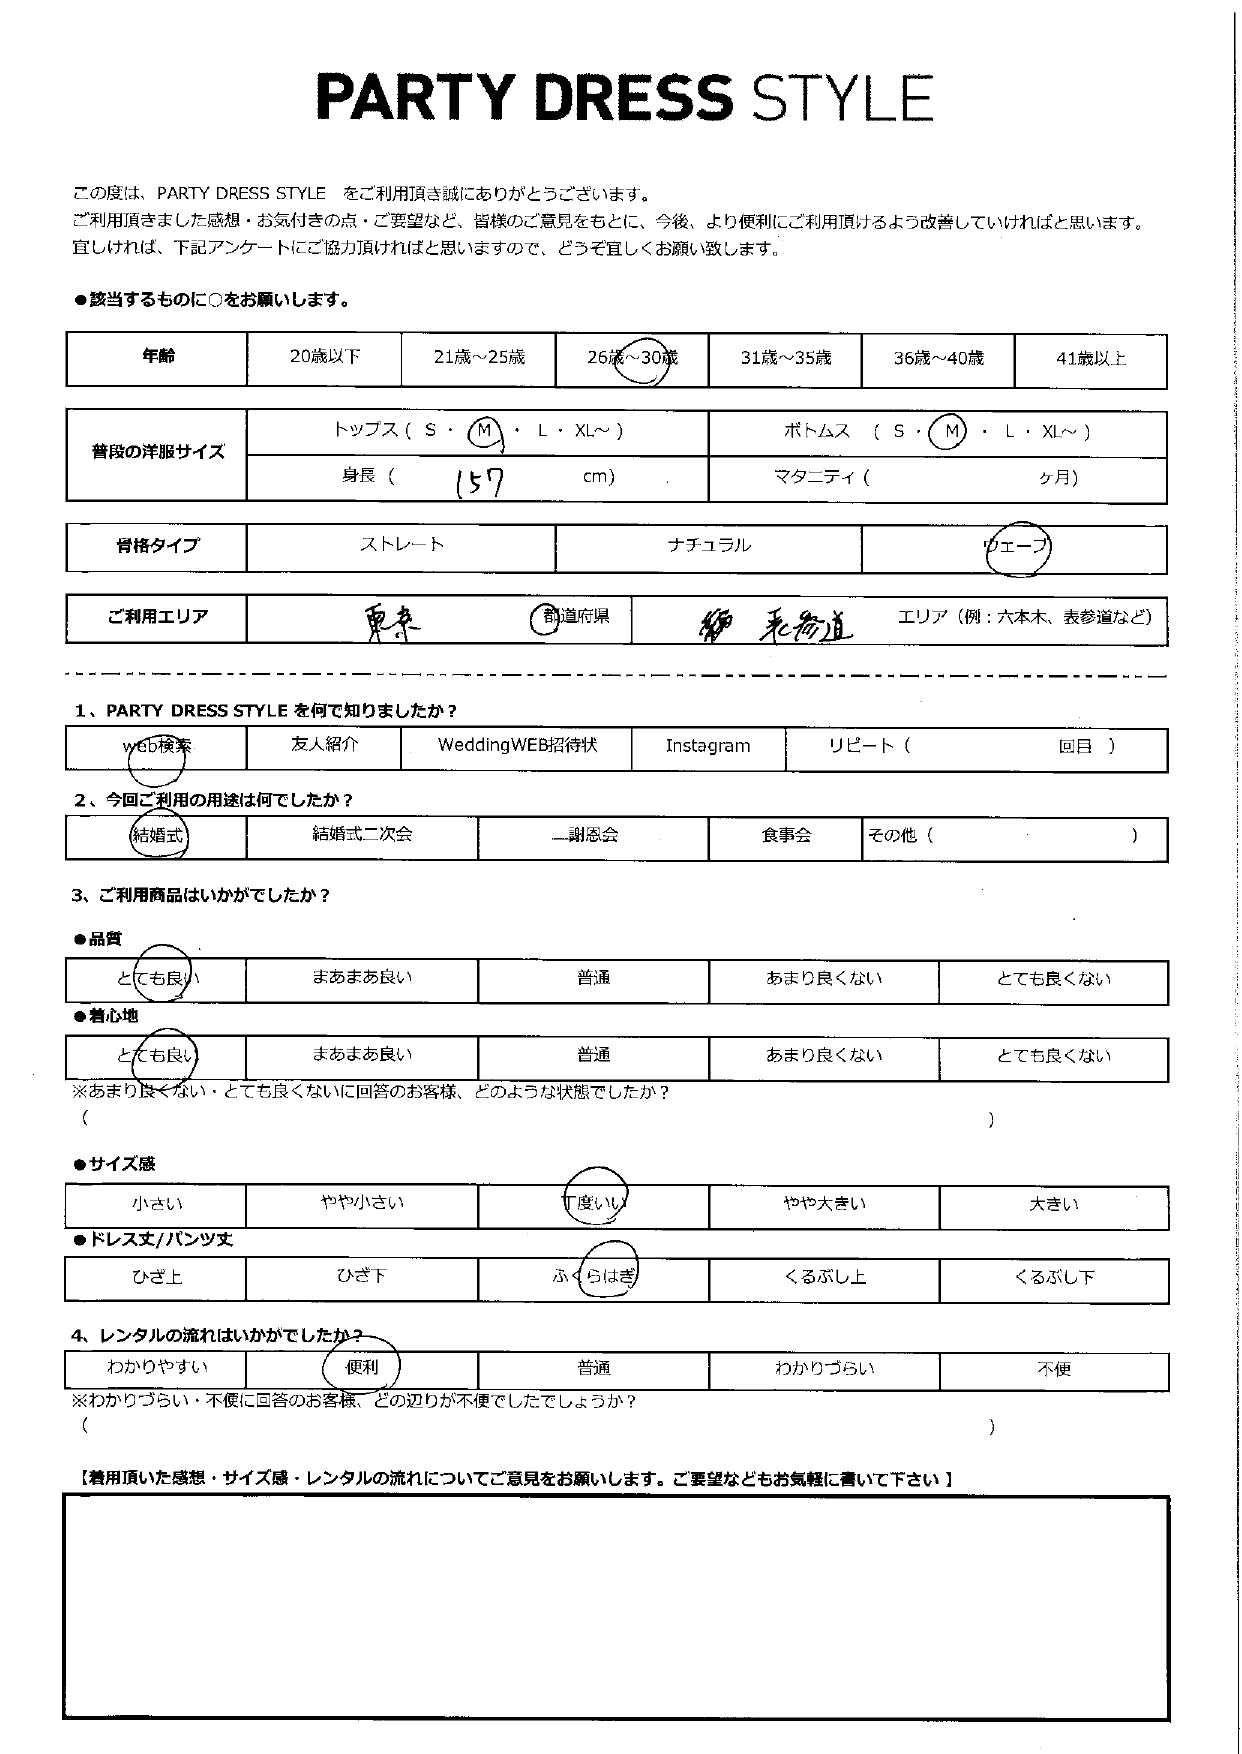 PARTY DRESS STYLE
この度は、PARTY DRESS STYLE　をご利用頂き誠にありがとうございます。
ご利用頂きました感想・お気付きの点・ご要望など、皆様のご意見をもとに、今後、より便利にご利用頂けるよう改善していければと思います。
宜しければ、下記アンケートにご協力頂ければと思いますので、どうぞ宜しくお願い致します。
●該当するものに○をお願いします。
年齢 20歳以下 21歳～25歳 26歳～30歳 31歳～35歳 36歳～40歳 41歳以上
普段の洋服サイズ トップス ( S ・ M ・ L ・ XL～ ) ボトムス ( S ・ M ・ L ・ XL～ )
身長 ( 157 cm) マタニティ ( ヶ月)
骨格タイプ ストレート ナチュラル ウェーブ
ご利用エリア 東京 都道府県 表参道 エリア（例：六本木、表参道など）
1、PARTY DRESS STYLE を何で知りましたか？
web検索 友人紹介 WeddingWEB招待状 Instagram リピート ( 回目 )
2、今回ご利用の用途は何でしたか？
結婚式 結婚式二次会 謝恩会 食事会 その他 ( )
3、ご利用商品はいかがでしたか？
●品質
とても良い まあまあ良い 普通 あまり良くない とても良くない
●着心地
とても良い まあまあ良い 普通 あまり良くない とても良くない
※あまり良くない・とても良くないに回答のお客様、どのような状態でしたか？
( )
●サイズ感
小さい やや小さい 丁度いい やや大きい 大きい
●ドレス丈/パンツ丈
ひざ上 ひざ下 ふくらはぎ くるぶし上 くるぶし下
4、レンタルの流れはいかがでしたか？
わかりやすい 便利 普通 わかりづらい 不便
※わかりづらい・不便に回答のお客様、どの辺りが不便でしたでしょうか？
( )
【着用頂いた感想・サイズ感・レンタルの流れについてご意見をお願いします。ご要望などもお気軽に書いて下さい 】